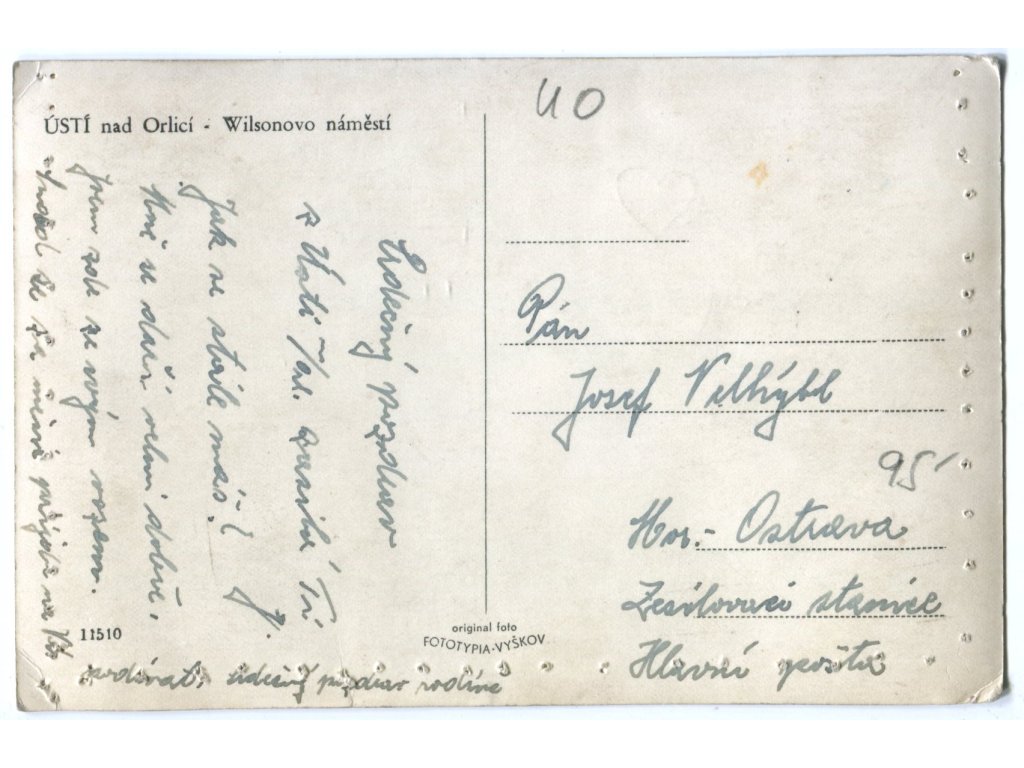 ÚSTÍ nad Orlicí - Wilsonovo náměstí
UO
Srdečný pozdrav
z Ústí n/Orl. zasílá Ti
J.
Jak se stále máš?
Mně se daří velmi dobře,
jsem zde se svým
se za mnou přijeďte na
podívat. Srdečný pozdrav rodině
11510
original foto
FOTOTYPIA-VYŠKOV
Pán
Josef Velhýbl
95
Mor.- Ostrava
Zesilovací stanice
Hlavní pošta